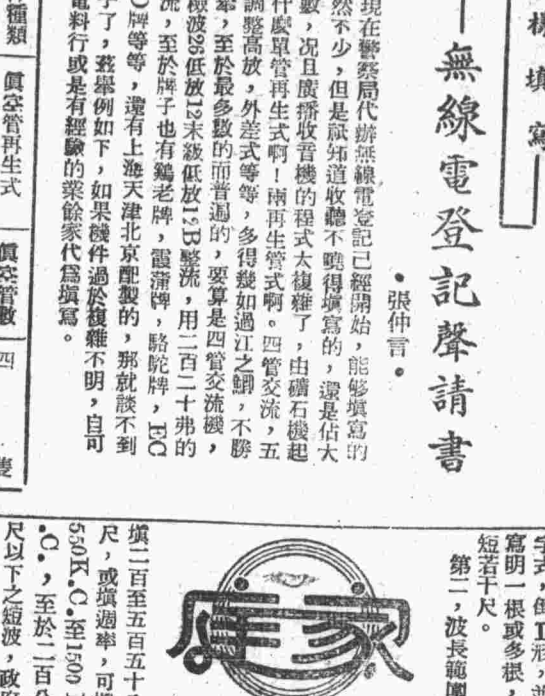 樣填寫
無線電登記聲請書
張仲言
現在警察局代辦無線電登記已經開始,能够填寫的
然不少,但是祇知道收聽不曉得填寫的,還是佔大
數,况且廣播收音機的程式太複雜了,由礦石機起
什麽單管再生式啊!兩再生管式啊。四管交流,五
調整高放,外差式等等,多得幾如過江之鯽,不勝
,至於最多數的而普遍的,要算是四管交流機,
檢波26低放12末級低放12B整流,用二百二十弗的
流,至於牌子也有鷄老牌,霞蒲牌,駱駝牌,EC
O牌等等,還有上海天津北京配製的,那就談不到
了,玆舉例如下,如果機件過於複雜不明,自可
電料行或是有經驗的業餘家代爲填寫。
種類
眞空管再生式
眞空管數
四
隻
寫明一根或多根
短若干尺。
第二,波長範圍
家庭
填二百至五百五十
尺,或填週率,可
550K.C.至1500
.C.,至於二百公
尺以下之短波,政府